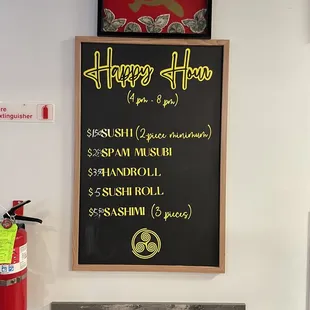 Happy Hour
(4pm - 8pm)
SUSHI (2 piece minimum)
SPAM MUSUBI
HANDROLL
$5 SUSHI ROLL
SASHIMI (3 pieces)
re
xtinguisher